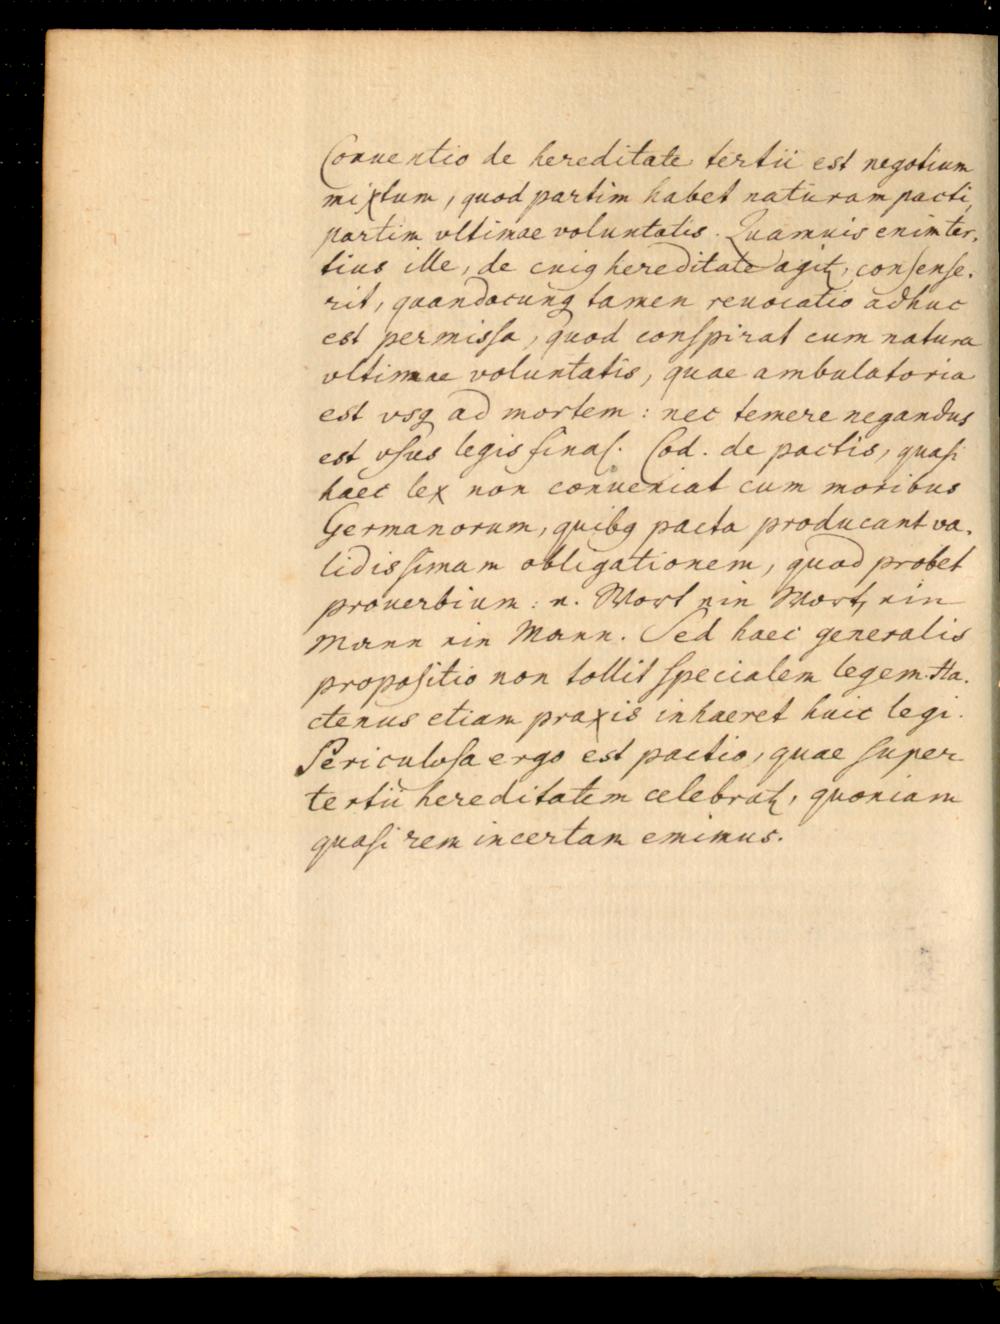 Conuentio de hereditate tertii est negotium
mixtum, quod partim habet naturam pacti,
partim vltimae voluntatis. Quamuis enim ter-
tius ille, de cuiq hereditate agit, conſenſe-
rit, quandocunq tamen reuocatio adhuc
est permisſa, quod conſpirat cum natura
vltimae voluntatis, quae ambulatoria
est vsq ad mortem: nec temere negandus
est vſus legis final. Cod. de pactis, quaſi
haec lex non conueniat cum moribus
Germanorum, quibq pacta producant va-
lidisſimam obligationem, quod probet
prouerbium: e. Wort ein Wort, ein
Mann ein Mann. Sed haec generalis
propoſitio non tollit ſpecialem legem. Ha-
ctenus etiam praxis inhaeret huic legi.
Periculoſa ergo est pactio, quae ſuper
tertii hereditatem celebrat, quoniam
quaſi rem incertam emimus.